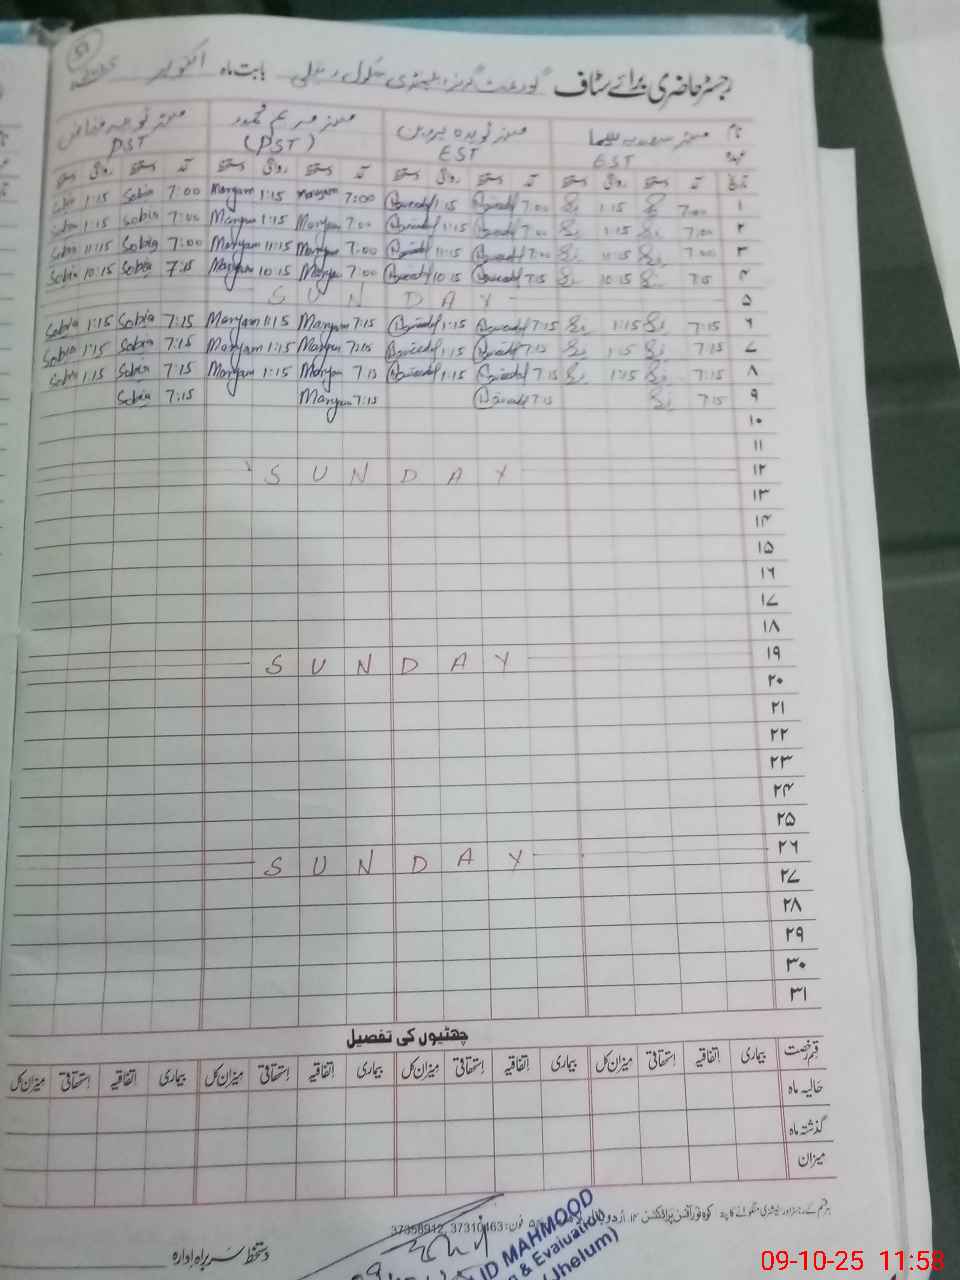 51
رجسٹر حاضری برائے سٹاف گورنمنٹ گرلز ایلیمنٹری سکول بابت ماہ اکتوبر
نام مسز مسز نویدہ پروین مسز مریم محمود مسز ثوبیہ
عہدہ EST EST (PST) PST
تاریخ آمد دستخط روانگی دستخط آمد دستخط روانگی دستخط آمد دستخط روانگی دستخط آمد دستخط روانگی دستخط
۱ 7:00 1:15 7:00 1:15 7:00 Maryam 1:15 Maryam 7:00 Sobia 1:15 Sobia
۲ 7:00 1:15 7:00 1:15 7:00 Maryam 1:15 Maryam 7:00 Sobia 1:15 Sobia
۳ 7:00 11:15 7:00 11:15 7:00 Maryam 11:15 Maryam 7:00 Sobia 11:15 Sobia
۴ 7:15 10:15 7:15 10:15 7:00 Maryam 10:15 Maryam 7:15 Sobia 10:15 Sobia
۵ SUNDAY
۶ 7:15 1:15 7:15 1:15 7:15 Maryam 1:15 Maryam 7:15 Sobia 1:15 Sobia
۷ 7:15 1:15 7:15 1:15 7:15 Maryam 1:15 Maryam 7:15 Sobia 1:15 Sobia
۸ 7:15 1:15 7:15 1:15 7:15 Maryam 1:15 Maryam 7:15 Sobia 1:15 Sobia
۹ 7:15 7:15 7:15 Maryam 7:15 Sobia
۱۰
۱۱
۱۲ SUNDAY
۱۳
۱۴
۱۵
۱۶
۱۷
۱۸
۱۹ SUNDAY
۲۰
۲۱
۲۲
۲۳
۲۴
۲۵
۲۶ SUNDAY
۲۷
۲۸
۲۹
۳۰
۳۱
چھٹیوں کی تفصیل
قسم رخصت بیماری اتفاقیہ استحقاقی میزان کل بیماری اتفاقیہ استحقاقی میزان کل بیماری اتفاقیہ استحقاقی میزان کل بیماری اتفاقیہ استحقاقی میزان کل
حالیہ ماہ
گذشتہ ماہ
میزان
ہر قسم کے رجسٹر اور سٹیشنری منگوانے کا پتہ ۱۴۔ اردو بازار لاہور فون: 37310463, 37358912
دستخط سربراہ ادارہ
ID MAHMOOD
& Evaluation)
Jhelum)
09-10-25 11:58